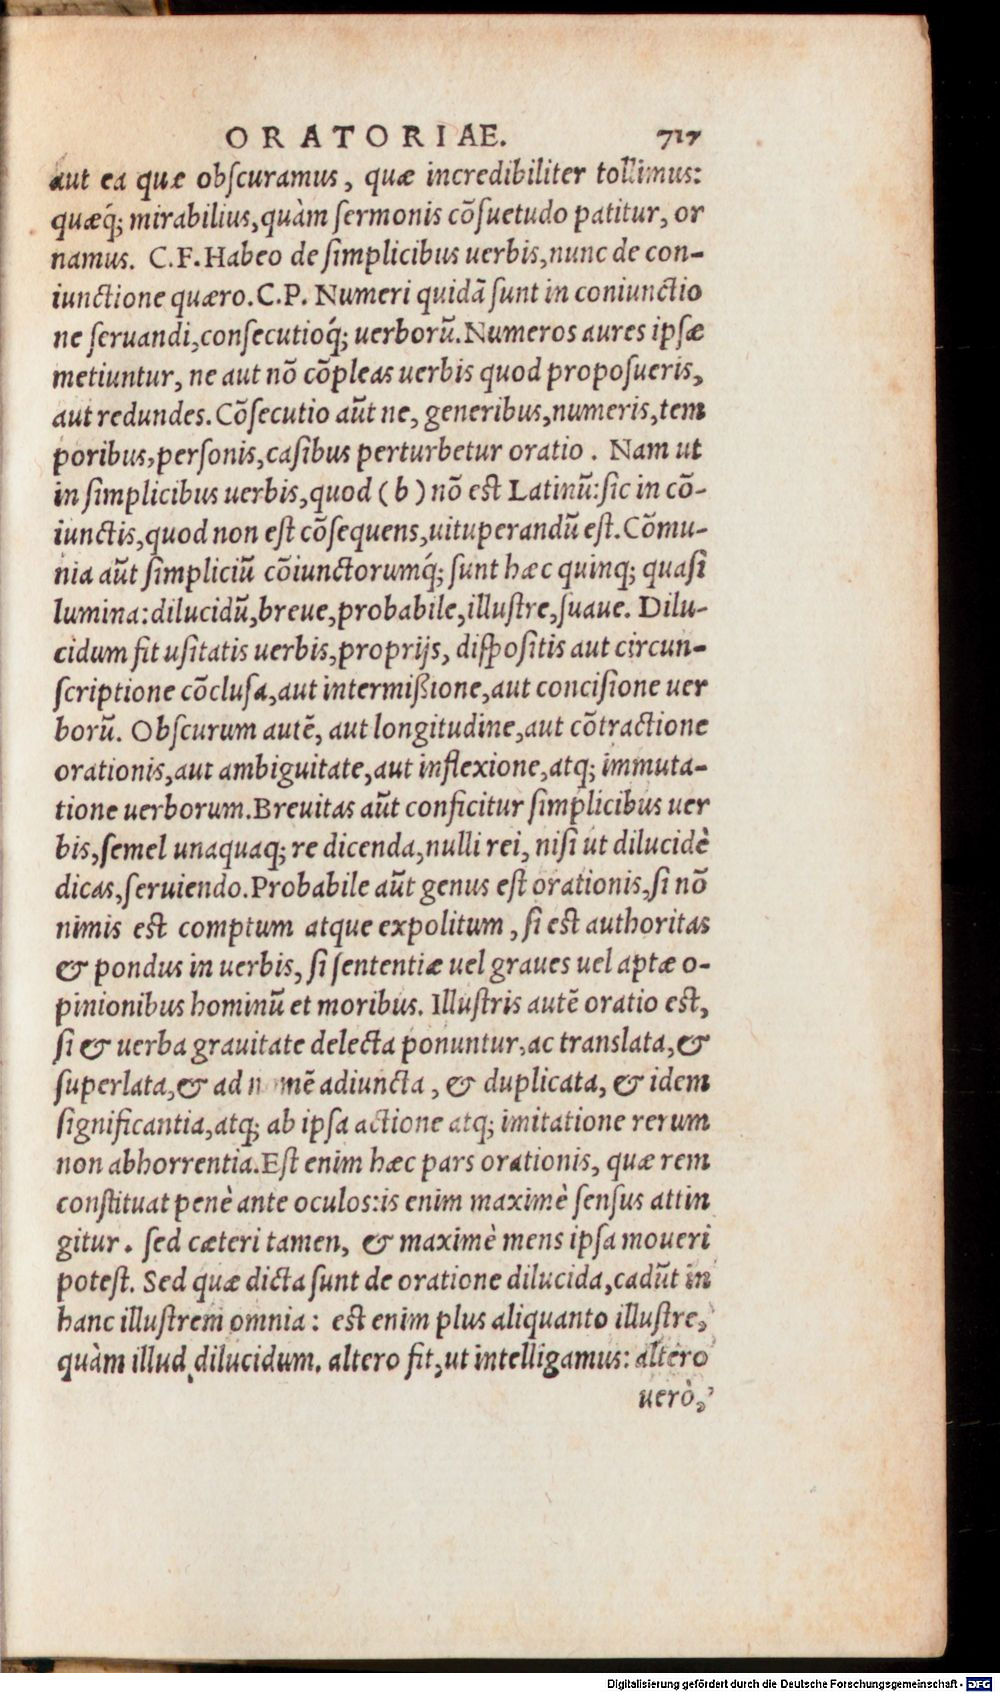 ORATORIAE. 717
aut ea quæ obscuramus, quæ incredibiliter tollimus:
quæq́; mirabilius, quàm sermonis cõsuetudo patitur, or
namus. C.F. Habeo de simplicibus uerbis, nunc de con-
iunctione quæro. C.P. Numeri quidã sunt in coniunctio
ne seruandi, consecutioq́; uerborũ. Numeros aures ipsæ
metiuntur, ne aut nõ cõpleas uerbis quod proposueris,
aut redundes. Cõsecutio aũt ne, generibus, numeris, tem
poribus, personis, casibus perturbetur oratio. Nam ut
in simplicibus uerbis, quod (b) nõ est Latinũ: sic in cõ-
iunctis, quod non est cõsequens, uituperandũ est. Cõmu-
nia aũt simpliciũ cõiunctorumq́; sunt hæc quinq; quasi
lumina: dilucidũ, breue, probabile, illustre, suaue. Dilu-
cidum fit usitatis uerbis, proprijs, dispositis aut circun-
scriptione cõclusa, aut intermißione, aut concisione uer
borũ. Obscurum autẽ, aut longitudine, aut cõtractione
orationis, aut ambiguitate, aut inflexione, atq; immuta-
tione uerborum. Breuitas aũt conficitur simplicibus uer
bis, semel unaquaq; re dicenda, nulli rei, nisi ut dilucidè
dicas, seruiendo. Probabile aũt genus est orationis, si nõ
nimis est comptum atque expolitum, si est authoritas
& pondus in uerbis, si sententiæ uel graues uel aptæ o-
pinionibus hominũ et moribus. Illustris autẽ oratio est,
si & uerba grauitate delecta ponuntur, ac translata, &
superlata, & ad nomẽ adiuncta, & duplicata, & idem
significantia, atq; ab ipsa actione atq; imitatione rerum
non abhorrentia. Est enim hæc pars orationis, quæ rem
constituat penè ante oculos: is enim maximè sensus attin
gitur. sed cæteri tamen, & maximè mens ipsa moueri
potest. Sed quæ dicta sunt de oratione dilucida, cadũt in
hanc illustrem omnia: est enim plus aliquanto illustre,
quàm illud dilucidum. altero fit, ut intelligamus: altero
uerò,
Digitalisierung gefördert durch die Deutsche Forschungsgemeinschaft - DFG